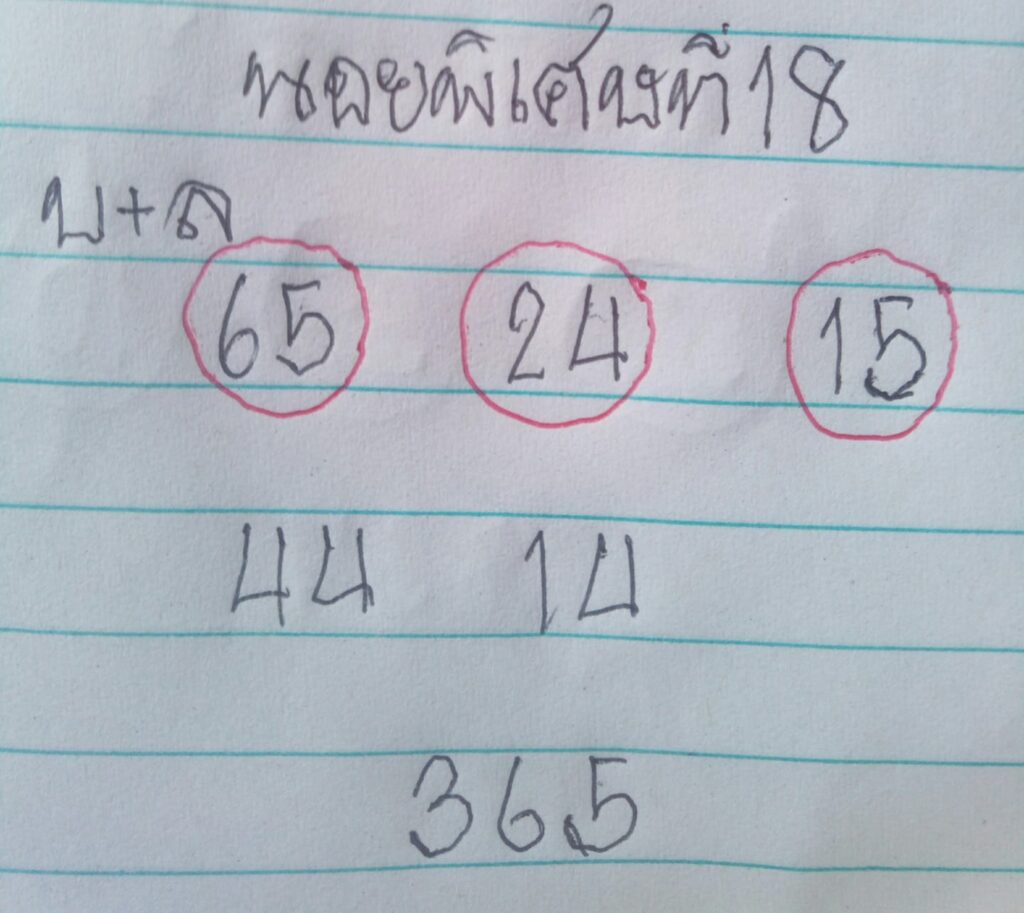 หอยพิเศษที่18
บ+ล
65 24 15
44 14
365